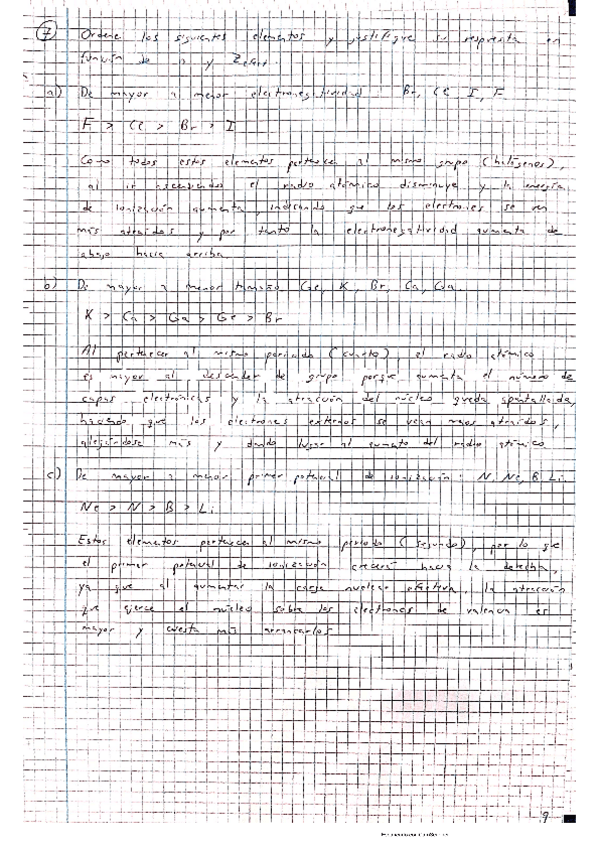 7 Ordene los siguientes elementos y justifique su respuesta en
función de n y Zefect.
a) De mayor a menor electronegatividad: Br, Cl, I, F
F > Cl > Br > I
Como todos estos elementos pertenecen al mismo grupo (halógenos),
al ir ascendiendo el radio atómico disminuye y la energía
de ionización aumenta, indicando que los electrones se ven
más atraídos y por tanto la electronegatividad aumenta de
abajo hacia arriba
b) De mayor a menor tamaño: Ge, K, Br, Ca, Ga.
K > Ca > Ga > Ge > Br
Al pertenecer al mismo periodo (cuarto), el radio atómico
es mayor al descender de grupo porque aumenta el número de
capas electrónicas y la atracción del núcleo queda apantallada,
haciendo que los electrones externos se vean menos atraídos,
alejándose más y dando lugar al aumento del radio atómico
c) De mayor a menor primer potencial de ionización: N, Ne, B, Li.
Ne > N > B > Li
Estos elementos pertenecen al mismo periodo (segundo), por lo que
el primer potencial de ionización crecerá hacia la derecha,
ya que al aumentar la carga nuclear efectiva, la atracción
que ejerce el núcleo sobre los electrones de valencia es
mayor y cuesta más arrancarlos
9